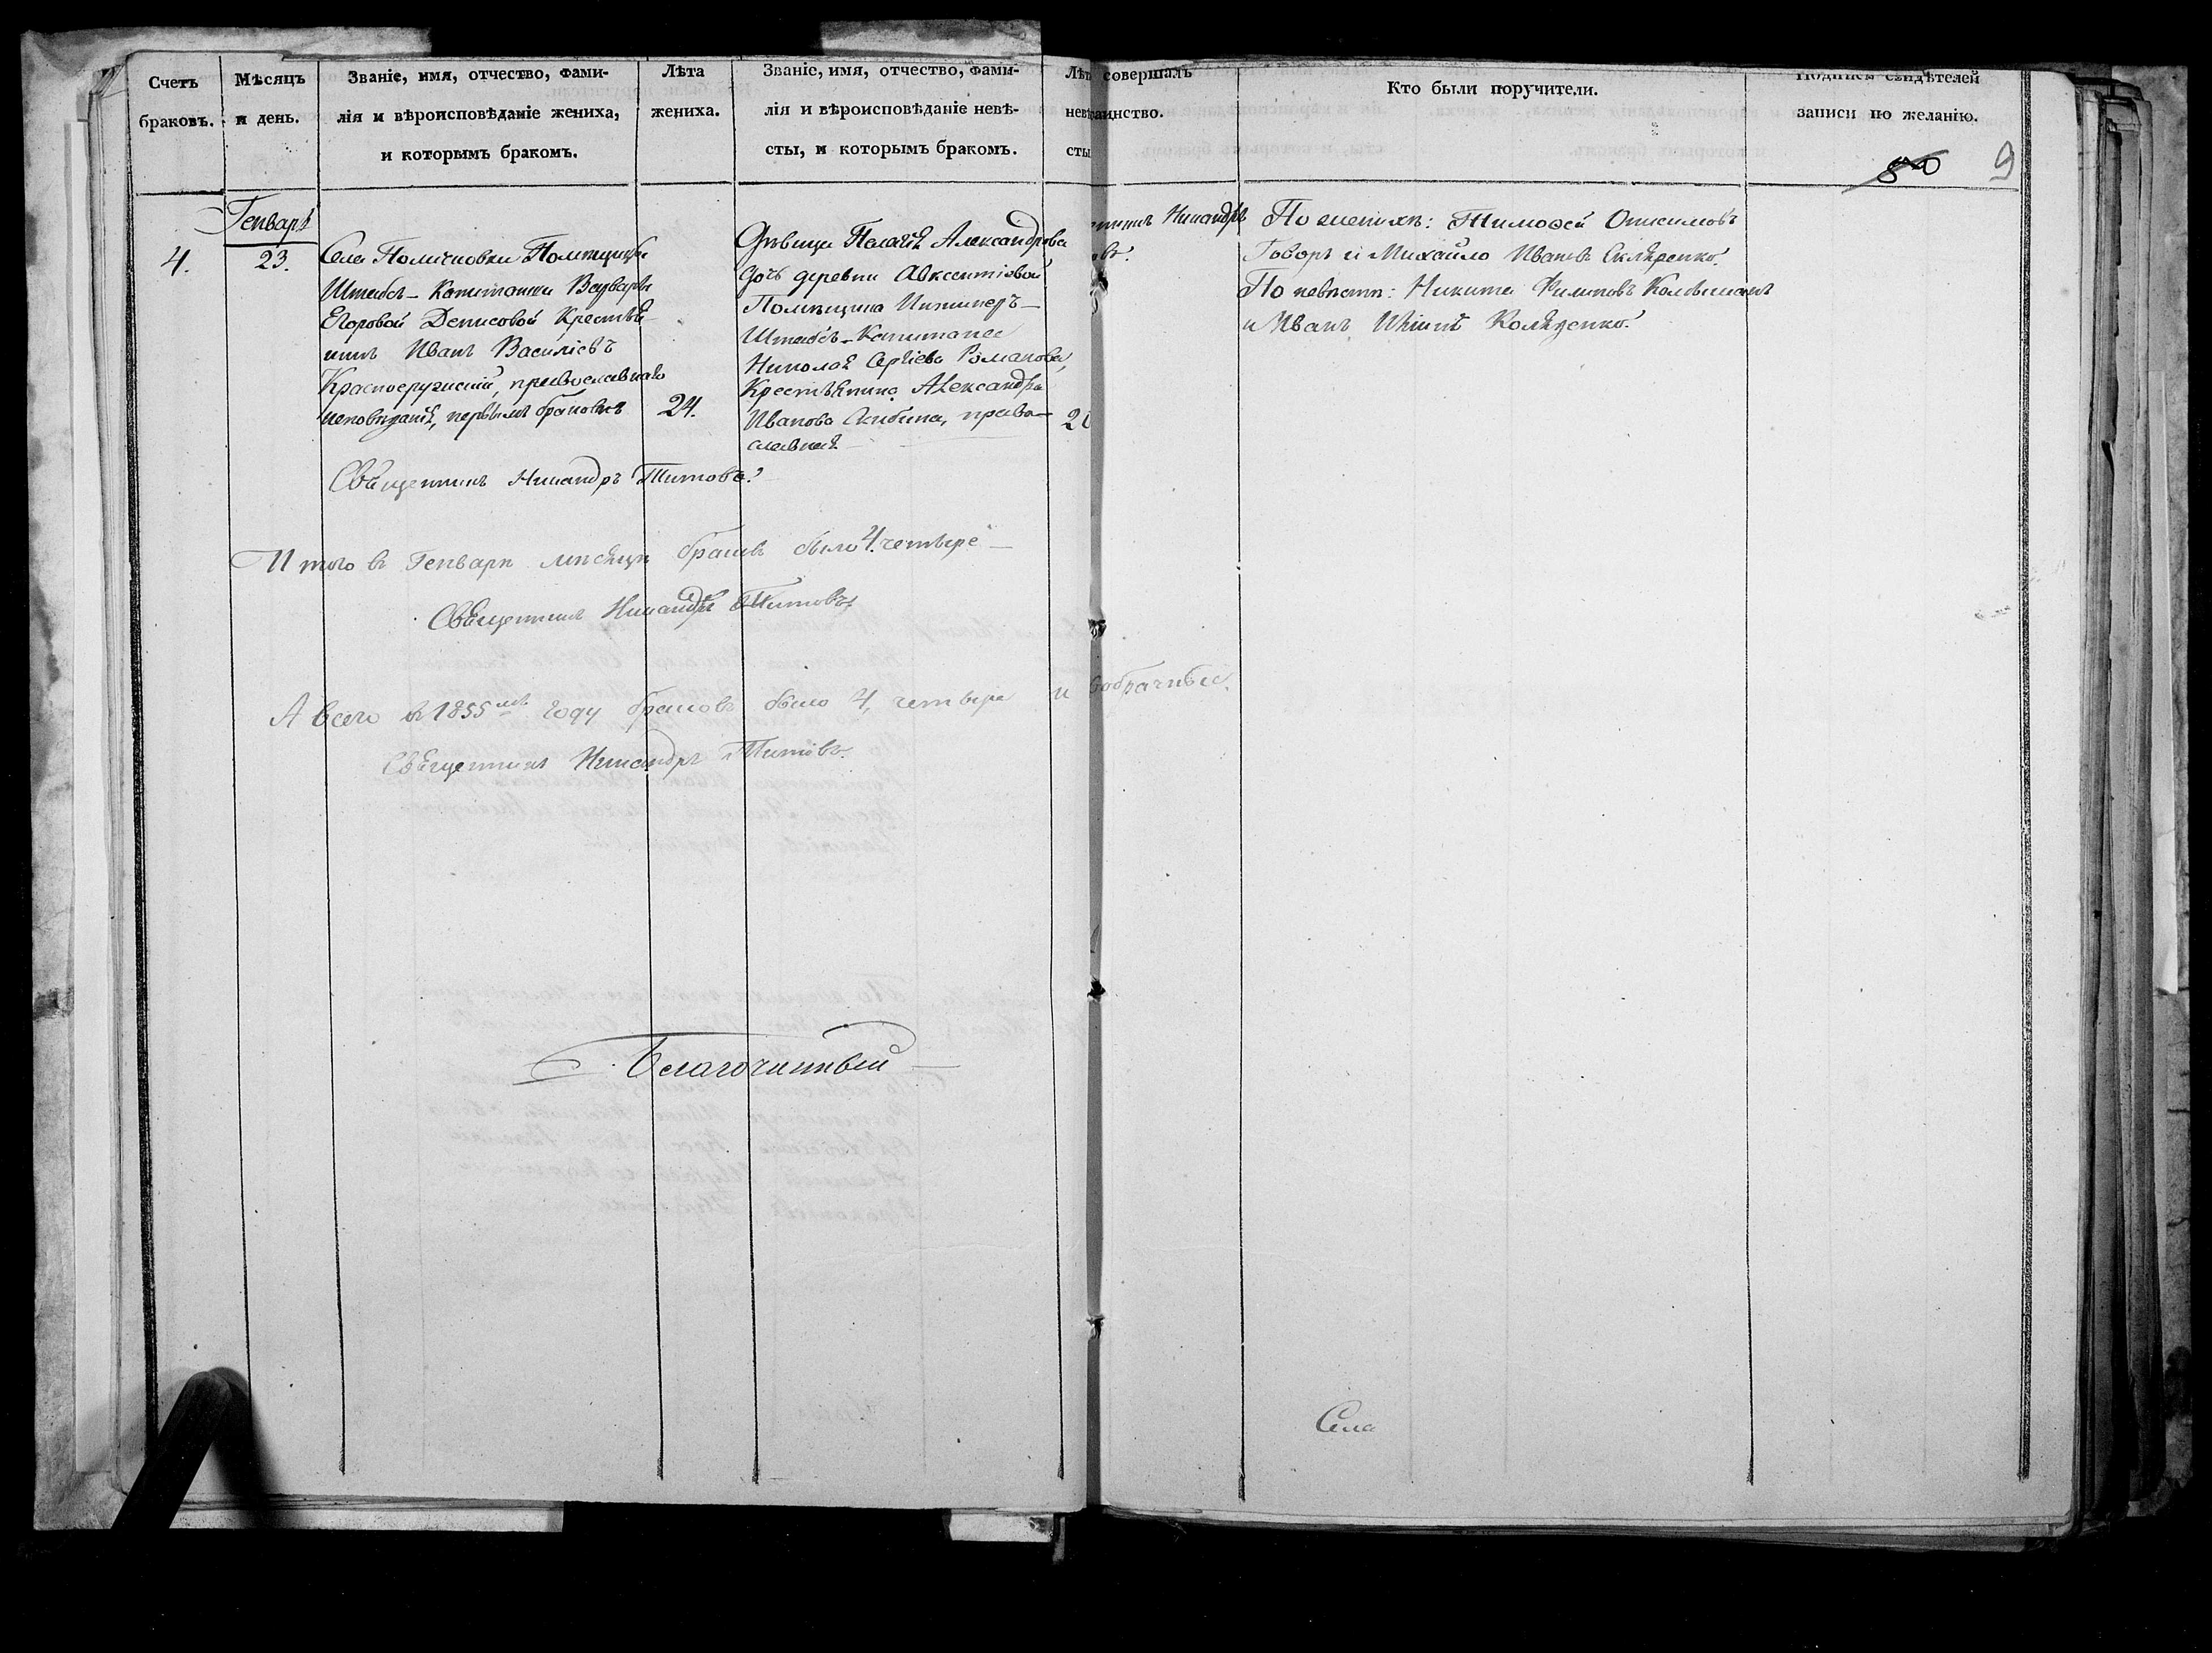 Счетъ
браковъ.
Мѣсяцъ
и день.
Званіе, имя, отчество, фами-
лія и вѣроисповѣданіе жениха,
и которымъ бракомъ.
Лѣта
жениха.
Званіе, имя, отчество, фами-
лія и вѣроисповѣданіе невѣ-
сты, и которымъ бракомъ.
Лѣт
невѣ
сты
совершалъ
таинство.
Кто были поручители.
Подписи свидѣтелей
записи по желанію.
80 9
Генварь
4.
23.
Села Помѣщицы
Штабсъ-Капитанши Варвары
Егоровой Денисовой Крестья-
нинъ Иванъ Василіевъ
Краснояружскій, православнаго
исповѣданія, первымъ бракомъ
24.
Дѣвица Пелагія Александрова
дочь деревни Авксентіовой
Помѣщика Инженеръ-
Штабсъ-Капитана
Николая Сергіева Романова,
Крестьянина Александра
Иванова Скибина, право-
славная
2
Священникъ Никандръ Титовъ.
Никандръ
овъ.
По женихѣ: Тимоѳей Онисимовъ
Говоръ и Михайло Ивановъ Скляренко.
По невѣстѣ: Никита Филиповъ
и Иванъ Коляденко.
Итого въ Генварѣ мѣсяцѣ браковъ было 4. четыре
Священникъ Никандръ Титовъ
А всего въ 1855мъ году браковъ было 4, четыре и
Священникъ Никандръ Титовъ.
Благочинный
Села